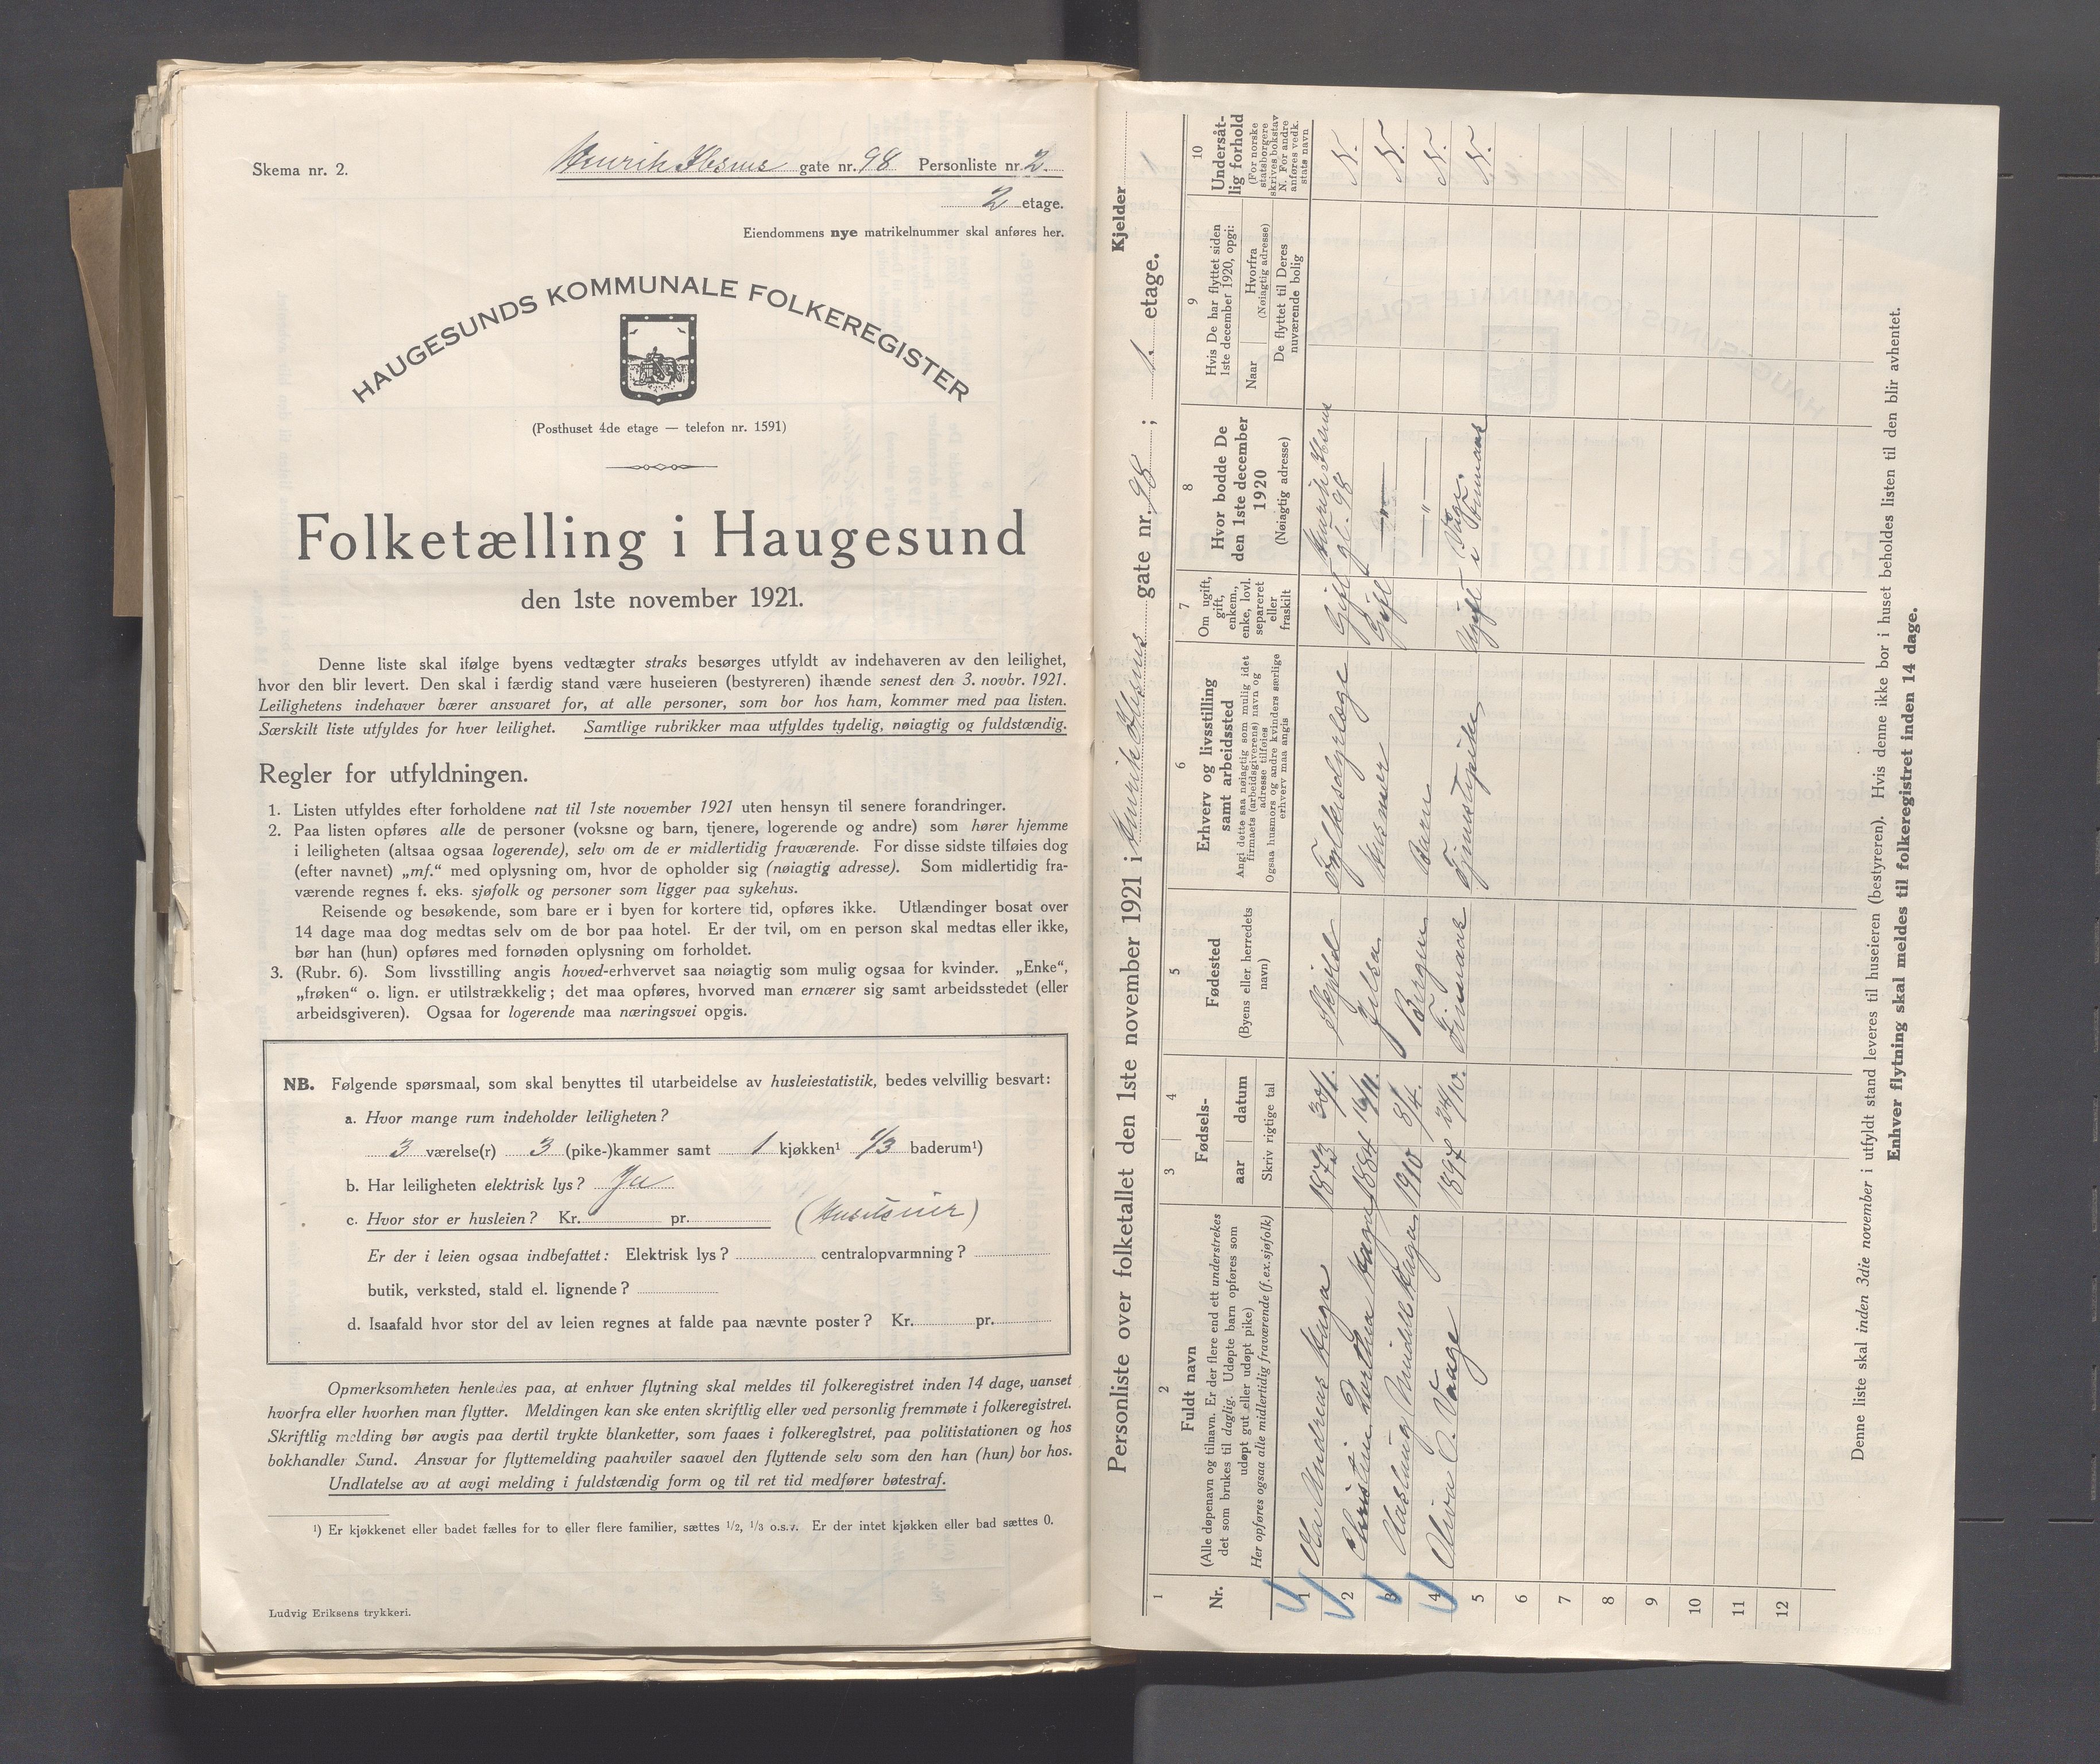 Skema nr. 2.
Henrik Ibsens gate nr. 98 Personliste nr. 2.
2 etage.
Eiendommens nye matrikelnummer skal anføres her.
HAUGESUNDS KOMMUNALE FOLKEREGISTER
(Posthuset 4de etage — telefon nr. 1591)
Folketælling i Haugesund
den 1ste november 1921.
Denne liste skal ifølge byens vedtægter straks besørges utfyldt av indehaveren av den leilighet,
hvor den blir levert. Den skal i færdig stand være huseieren (bestyreren) ihænde senest den 3. novbr. 1921.
Leilighetens indehaver bærer ansvaret for, at alle personer, som bor hos ham, kommer med paa listen.
Særskilt liste utfyldes for hver leilighet. Samtlige rubrikker maa utfyldes tydelig, nøiagtig og fuldstændig.
Regler for utfyldningen.
1. Listen utfyldes efter forholdene nat til 1ste november 1921 uten hensyn til senere forandringer.
2. Paa listen opføres alle de personer (voksne og barn, tjenere, logerende og andre) som hører hjemme
i leiligheten (altsaa ogsaa logerende), selv om de er midlertidig fraværende. For disse sidste tilføies dog
(efter navnet) „mf.“ med oplysning om, hvor de opholder sig (nøiagtig adresse). Som midlertidig fra-
værende regnes f. eks. sjøfolk og personer som ligger paa sykehus.
Reisende og besøkende, som bare er i byen for kortere tid, opføres ikke. Utlændinger bosat over
14 dage maa dog medtas selv om de bor paa hotel. Er der tvil, om en person skal medtas eller ikke,
bør han (hun) opføres med fornøden oplysning om forholdet.
3. (Rubr. 6). Som livsstilling angis hoved-erhvervet saa nøiagtig som mulig ogsaa for kvinder. „Enke“,
„frøken“ o. lign. er utilstrækkelig; det maa opføres, hvorved man ernærer sig samt arbeidsstedet (eller
arbeidsgiveren). Ogsaa for logerende maa næringsvei opgis.
NB. Følgende spørsmaal, som skal benyttes til utarbeidelse av husleiestatistik, bedes velvillig besvart:
a. Hvor mange rum indeholder leiligheten?
3 værelse(r) 3 (pike-)kammer samt 1 kjøkken¹ 1/3 baderum¹)
b. Har leiligheten elektrisk lys? Ja
c. Hvor stor er husleien? Kr. pr. (Huseier)
Er der i leien ogsaa indbefattet: Elektrisk lys? centralopvarmning?
butik, verksted, stald el. lignende?
d. Isaafald hvor stor del av leien regnes at falde paa nævnte poster? Kr. pr.
Opmerksomheten henledes paa, at enhver flytning skal meldes til folkeregistret inden 14 dage, uanset
hvorfra eller hvorhen man flytter. Meldingen kan ske enten skriftlig eller ved personlig fremmøte i folkeregistret.
Skriftlig melding bør avgis paa dertil trykte blanketter, som faaes i folkeregistret, paa politistationen og hos
bokhandler Sund. Ansvar for flyttemelding paahviler saavel den flyttende selv som den han (hun) bor hos.
Undlatelse av at avgi melding i fuldstændig form og til ret tid medfører bøtestraf.
¹) Er kjøkkenet eller badet fælles for to eller flere familier, sættes 1/2, 1/3 o.s.v. Er der intet kjøkken eller bad sættes 0.
Ludvig Eriksens trykkeri.
Personliste over folketallet den 1ste november 1921 i Henrik Ibsens gate nr. 98; 1. etage. Kjelder
1 2 3 4 5 6 7 8 9 10
Nr.
Fuldt navn
(Alle døpenavn og tilnavn. Er der flere end ett understrekes
det som brukes til daglig. Udøpte barn opføres som
udøpt gut eller udøpt pike)
Her opføres ogsaa alle midlertidig fraværende (f.ex. sjøfolk)
Fødsels-
aar datum
Skriv rigtige tal
Fødested
(Byens eller herredets
navn)
Erhverv og livsstilling
samt arbeidssted
Angi dette saa nøiagtig som mulig idet
firmaets (arbeidsgiverens) navn og
adresse tilføies
Ogsaa husmors og andre kvinders særlige
erhverv maa angis
Om ugift,
gift,
enkem.,
enke, lovl.
separeret
eller
fraskilt
Hvor bodde De
den 1ste december
1920
(Nøiagtig adresse)
Hvis De har flyttet siden
1ste december 1920, opgi:
Naar
Hvorfra
(Nøiagtig adresse)
De flyttet til Deres
nuværende bolig
Undersåt-
lig forhold
(For norske
statsborgere
skrives bokstav
N. For andre
anføres vedk.
stats navn
1 Andreas Haga 1873 30/1. Skjold Gift Henrik Ibsens gt. 98 N.
2 Christine Dorthea Hagen 1884 16/11. Jelsa Husmor Gift " N.
3 Aaslaug Hagen 1910 8/4. Bergen Barn " N.
4 Oliva O. Vaage 1897 24/10. Tjenestepike Ugift N.
5
6
7
8
9
10
11
12
Denne liste skal inden 3die november i utfyldt stand leveres til huseieren (bestyreren). Hvis denne ikke bor i huset beholdes listen til den blir avhentet.
Enhver flytning skal meldes til folkeregistret inden 14 dage.